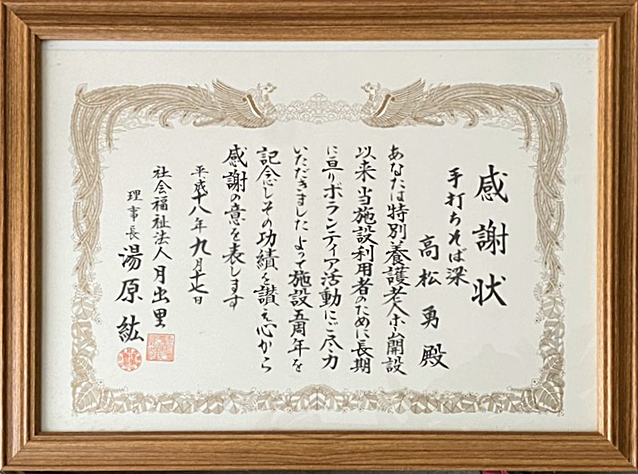 感謝状
手打ちそば梁
高松勇殿
あなたは特別養護老人ホーム開設
以来当施設利用者のために長期
に亘りボランティア活動にご尽力
いただきましたよって施設五周年を
記念しその功績を讃え心から
感謝の意を表します
平成十八年九月十七日
社会福祉法人月出里
理事長 湯原紘